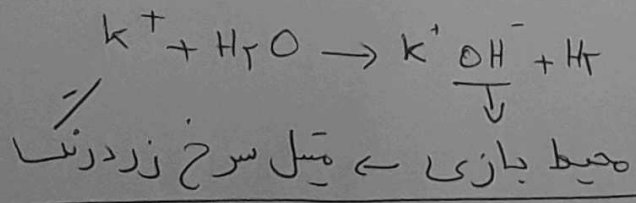 k⁺ + H₂O → k⁺ OH⁻ + H₂
محیط بازی ← متیل سرخ زردرنگ